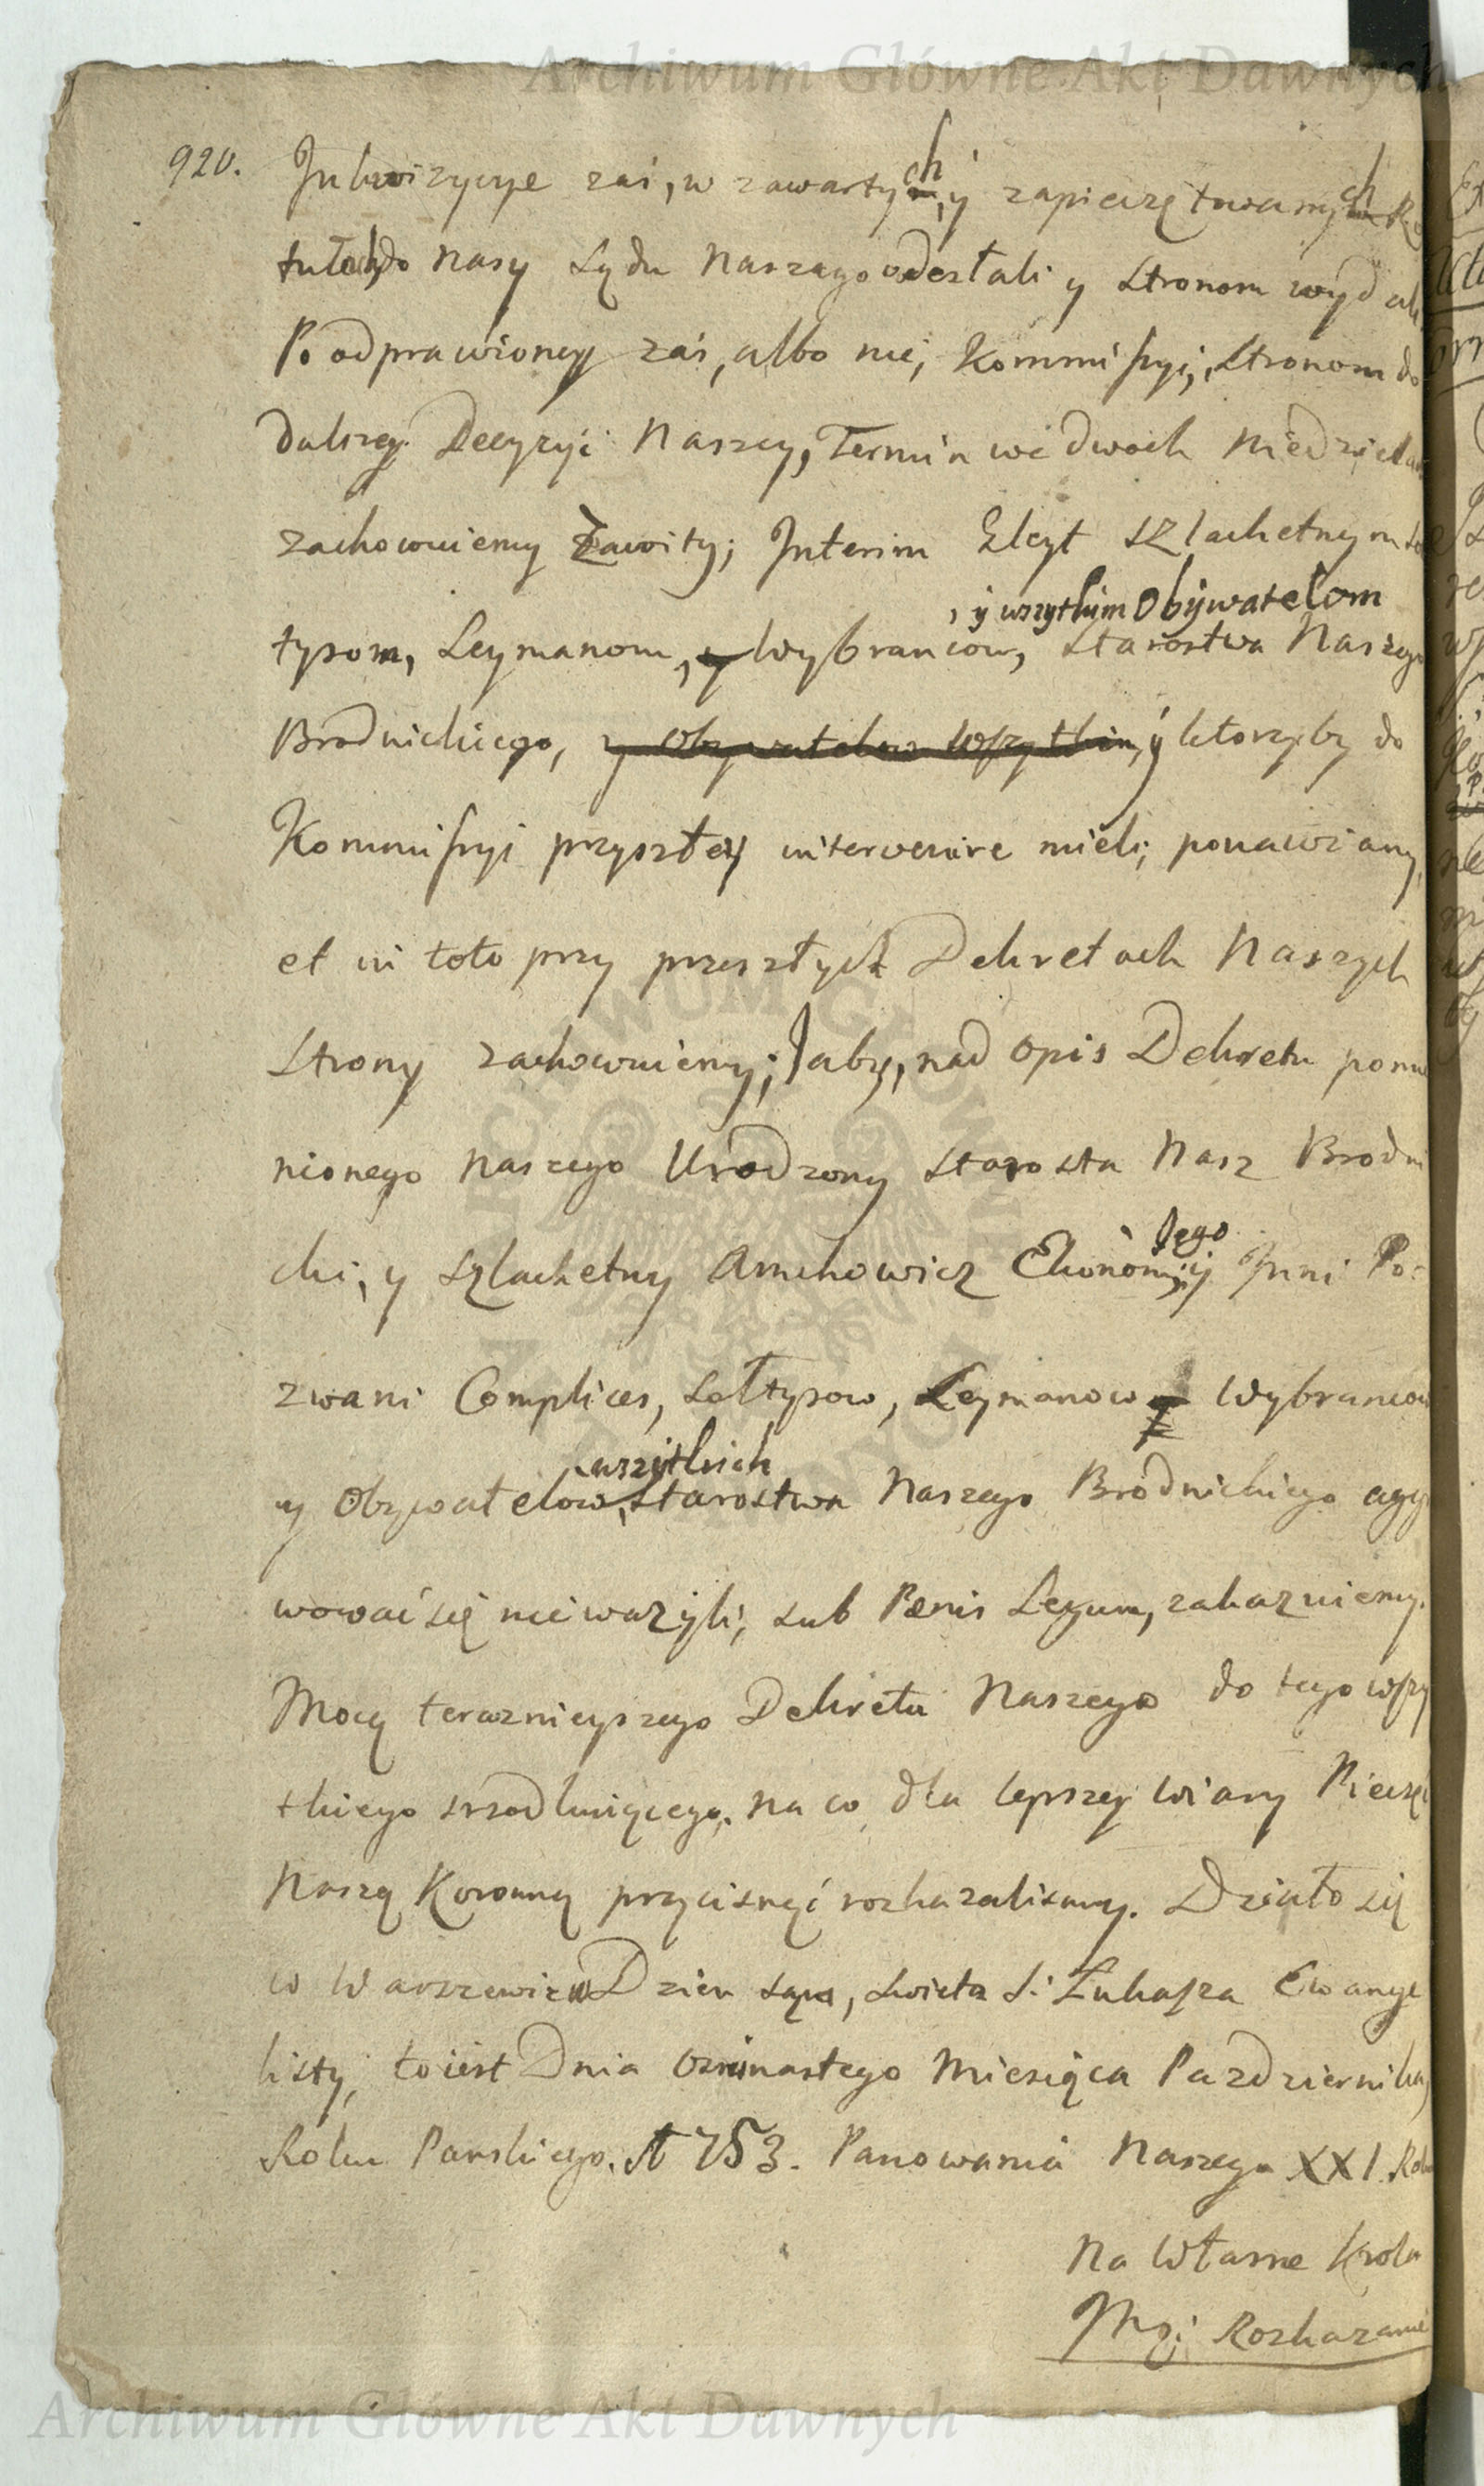 Archiwum Główne Akt Dawnych
920.
Inkwizycye zaś, w zawartych, y zapieczętowanych
tułach do naszy Sądu Naszego odesłali y Stronom wydali
Po odprawioney zaś, albo nie, Kommissyi, Stronom do
dalszey Decyzyi Naszey, Termin we dwoch Niedzielach
zachowuiemy Zawity; Interim Gleyt Szlachetnym
, y wszytkim Obywatelom
tysom, Leymanom, y Wybrancow, Starostwa Naszego
Brodnickiego, y Obywatelow Wszytkim, y ktorzyby do
Kommissyi przyszłey intervenire mieli; ponawiamy,
et in toto przy przeszłych Dekretach Naszych
Strony zachowuiemy; Iaby, nad opis Dekretu pomie
nionego Naszego Urodzony Starosta Nasz Brodni
cki, y Szlachetny Ekonom, Iego y Inni Po-
zwani Complices, Sołtysow, Leymanow y Wybrancow
wszytkich
y Obywatelow, Starostwa Naszego Brodnickiego agr
wować się nie ważyli, sub Pœnis Legum, zakazuiemy.
Mocą teraznieyszego Dekretu Naszego do tego wszy
tkiego srzodkuiącego. Na co dla lepszey Wiary Pieczęć
Naszą Koronną przycisnąć rozkazalismy. Działo się
w Warszawie w Dzien sam, Swięta S: Łukasza Ewange
listy, to iest Dnia Osmnastego Miesiąca Pazdziernika,
Roku Panskiego. 1753. Panowania Naszego XXI. Roku
Na Własne Krola
Mci Rozkazanie
Archiwum Główne Akt Dawnych